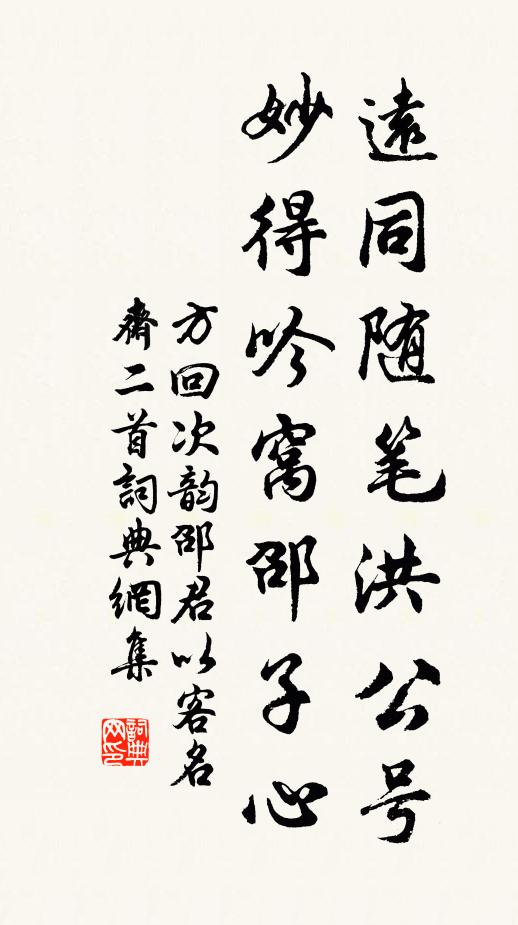 遠同随笔洪公号
妙得吟窩邵子心
方回次韵邵君以客名
齋二首詞典網集
詞典
网印